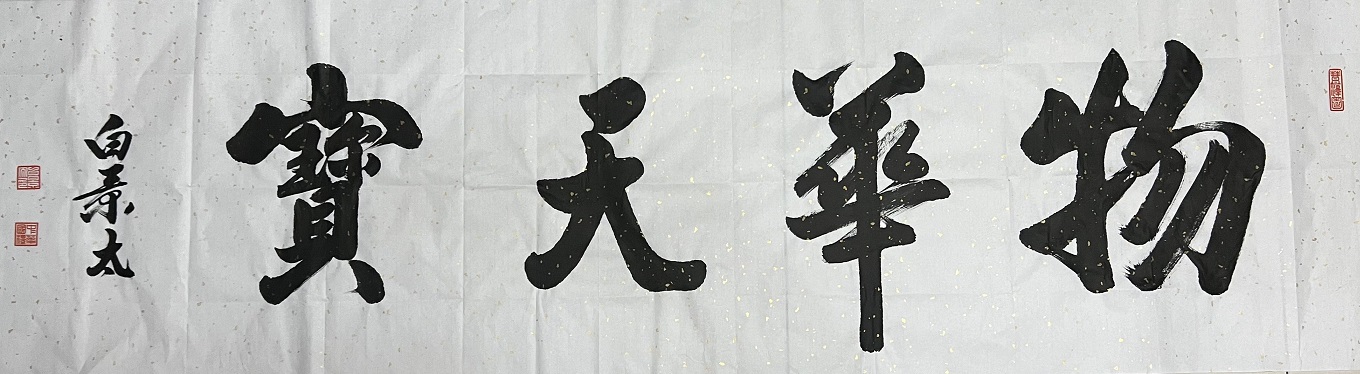 物華天寶
白景太